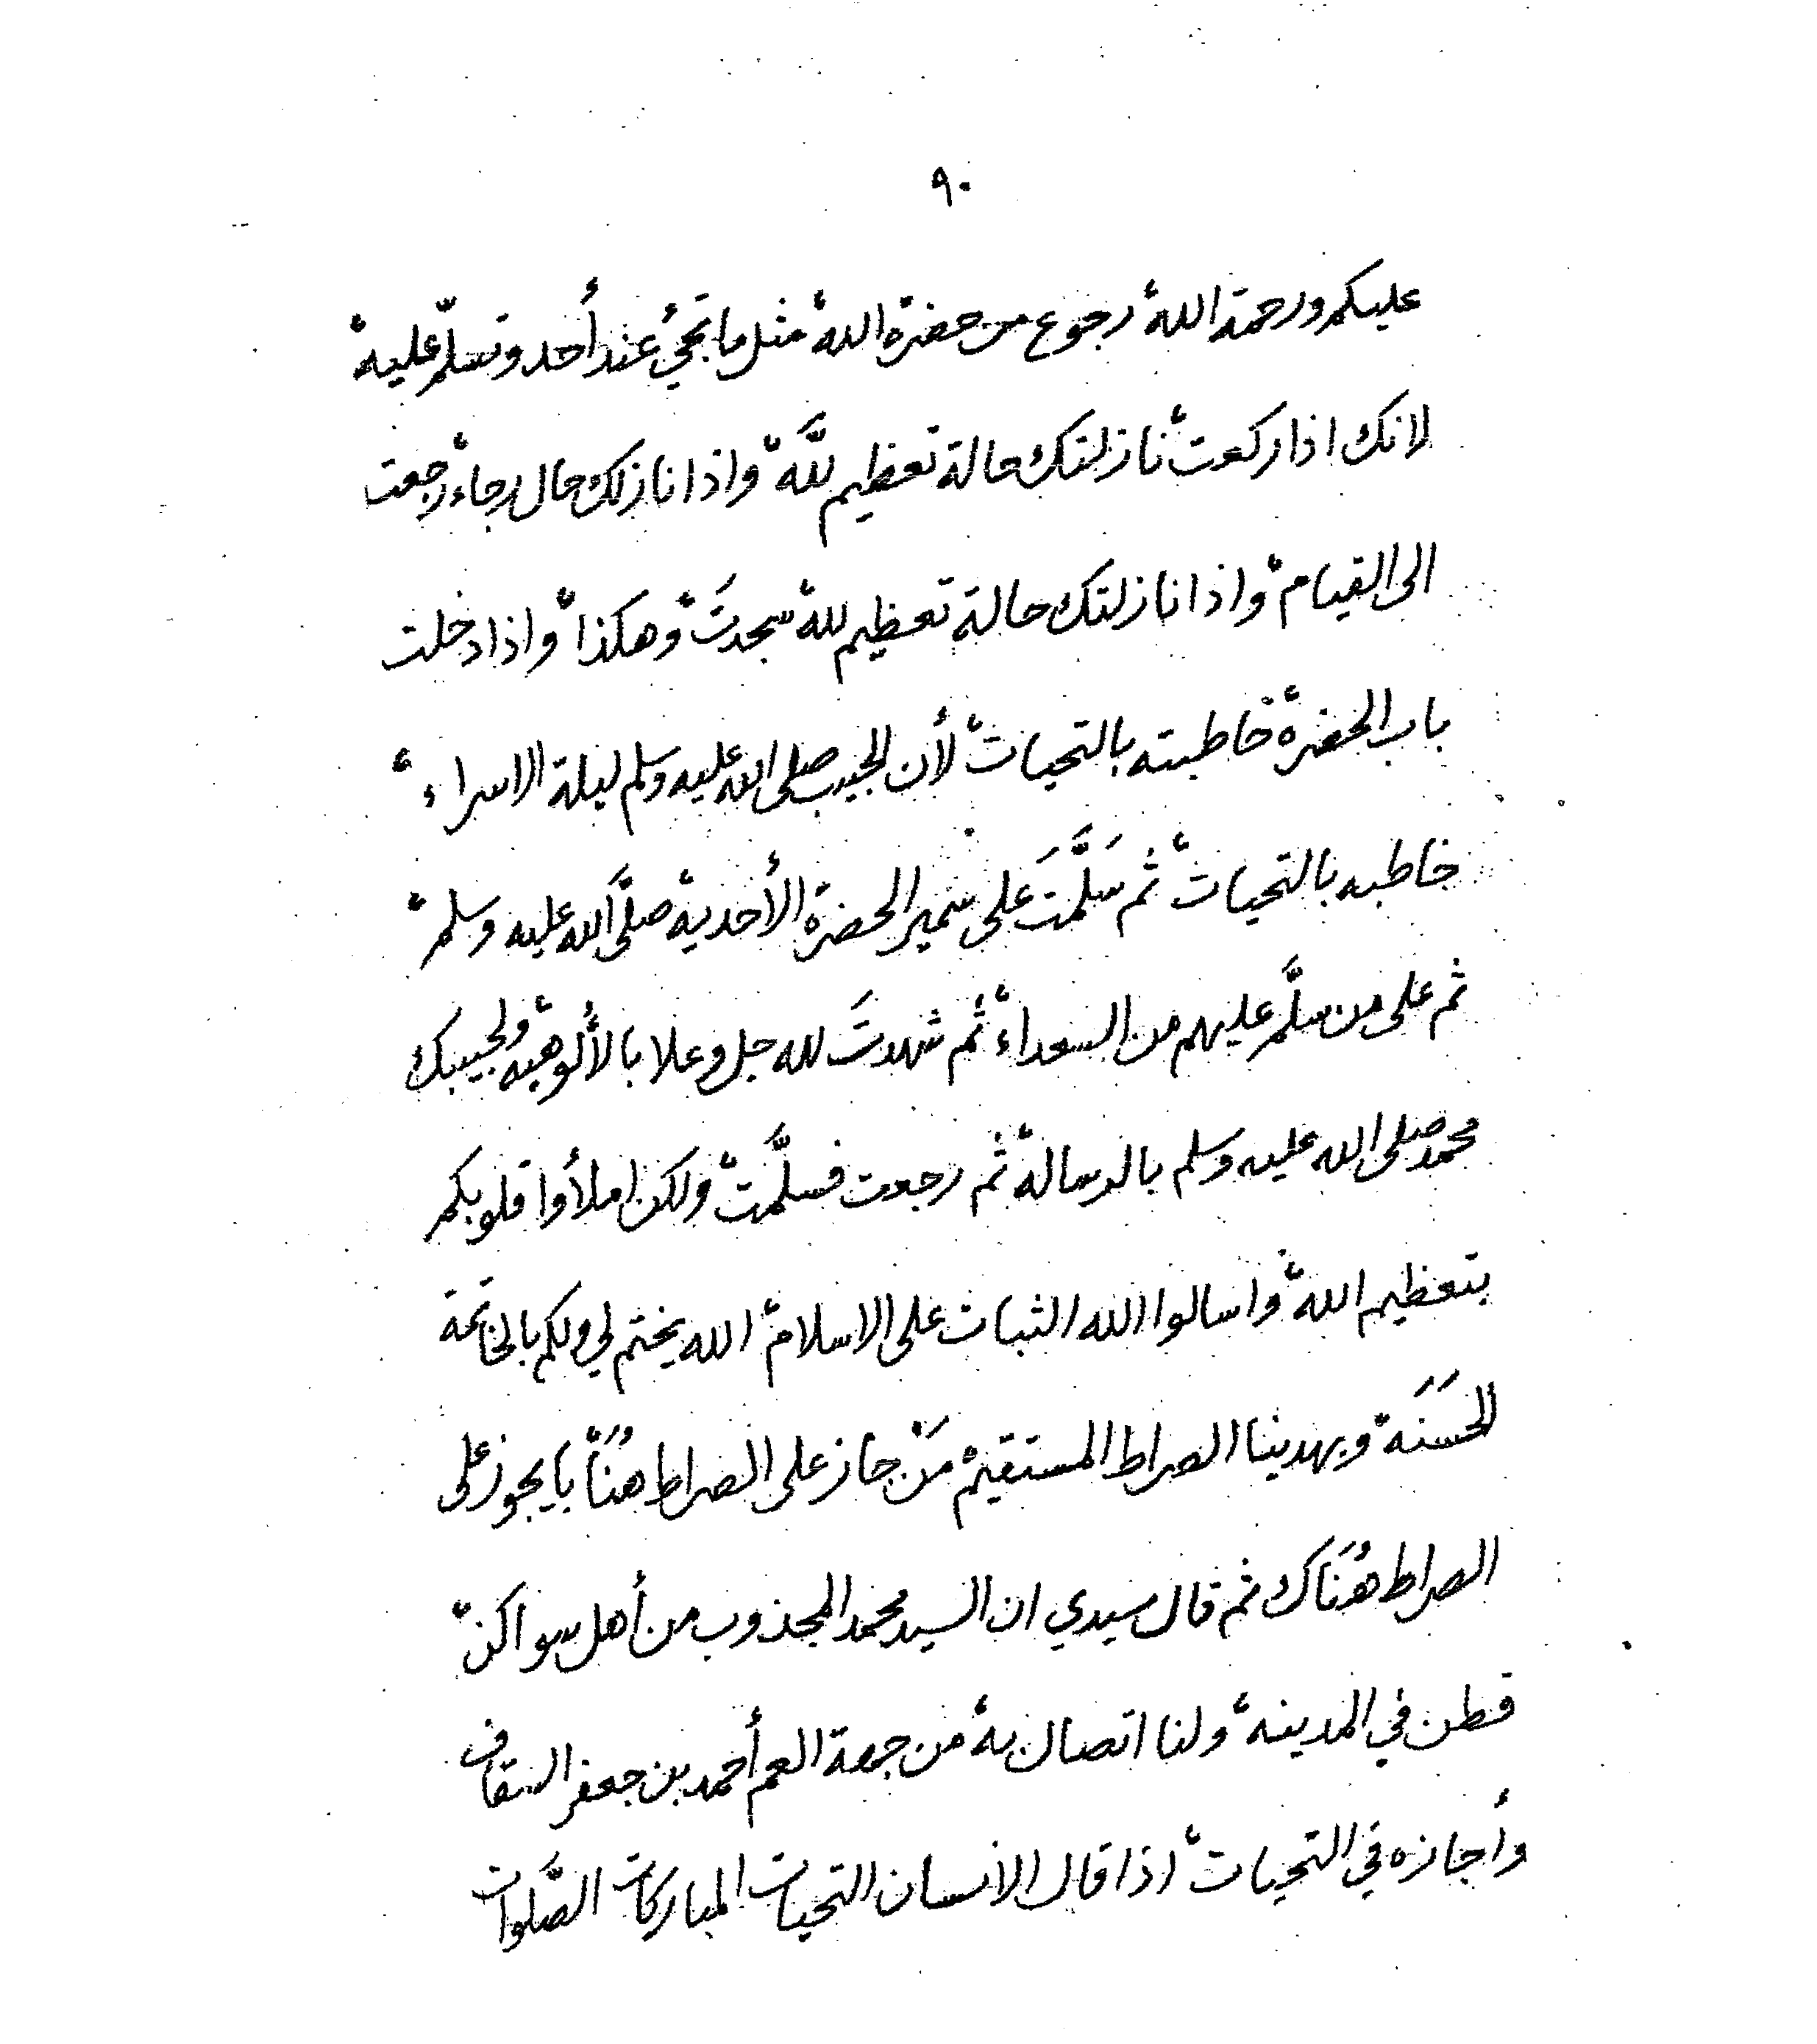 ٩٠
عليكم ورحمة الله، رجوع من حضرة الله، مثل ما تجيْ عند أحد وتسلّم عليه،
لانك اذا ركعت، نازلتك حالة تعظيم للَّه، واذا نازلك حال رجاء، رجعت
الى القيام، واذا نازلتك حالة تعظيم لله، سجدتَ، وهكذا، واذا دخلت
باب الحضرة، خاطبته بالتحيات، لأن الحبيب صلى الله عليه وسلم ليلة الاسراء،
خاطبه بالتحيات، ثم سَلَّمتَ على سمير الحضرة الأحدية، صلَّى الله عليه وسلم،
ثم على من سلَّم عليهم من السعداء، ثُم شهدتَ لله جل وعلا بالألوهيه، ولحبيبك
محمد صلى الله عليه وسلم بالرساله، ثُم رجعت فسلَّمت، ولكن املأوا قلوبكم
بتعظيم الله، واسالوا الله الثبات على الاسلام، الله يختم لي ولكم بالخاتمة
الحَسَنَه، ويهدينا الصراط المستقيم، مَنْ جاز على الصراط هُنَا، بايجوز على
الصراط هُنَاك، ثم قال سيدي ان السيد محمد المجذوب من أهل سواكن،
قطن في المدينه، ولنا اتصال به، من جهة العم أحمد بن جعفر السقاف
وأجازه في التحيات، اذا قال الانسان التحيات المباركات الصَّلوات